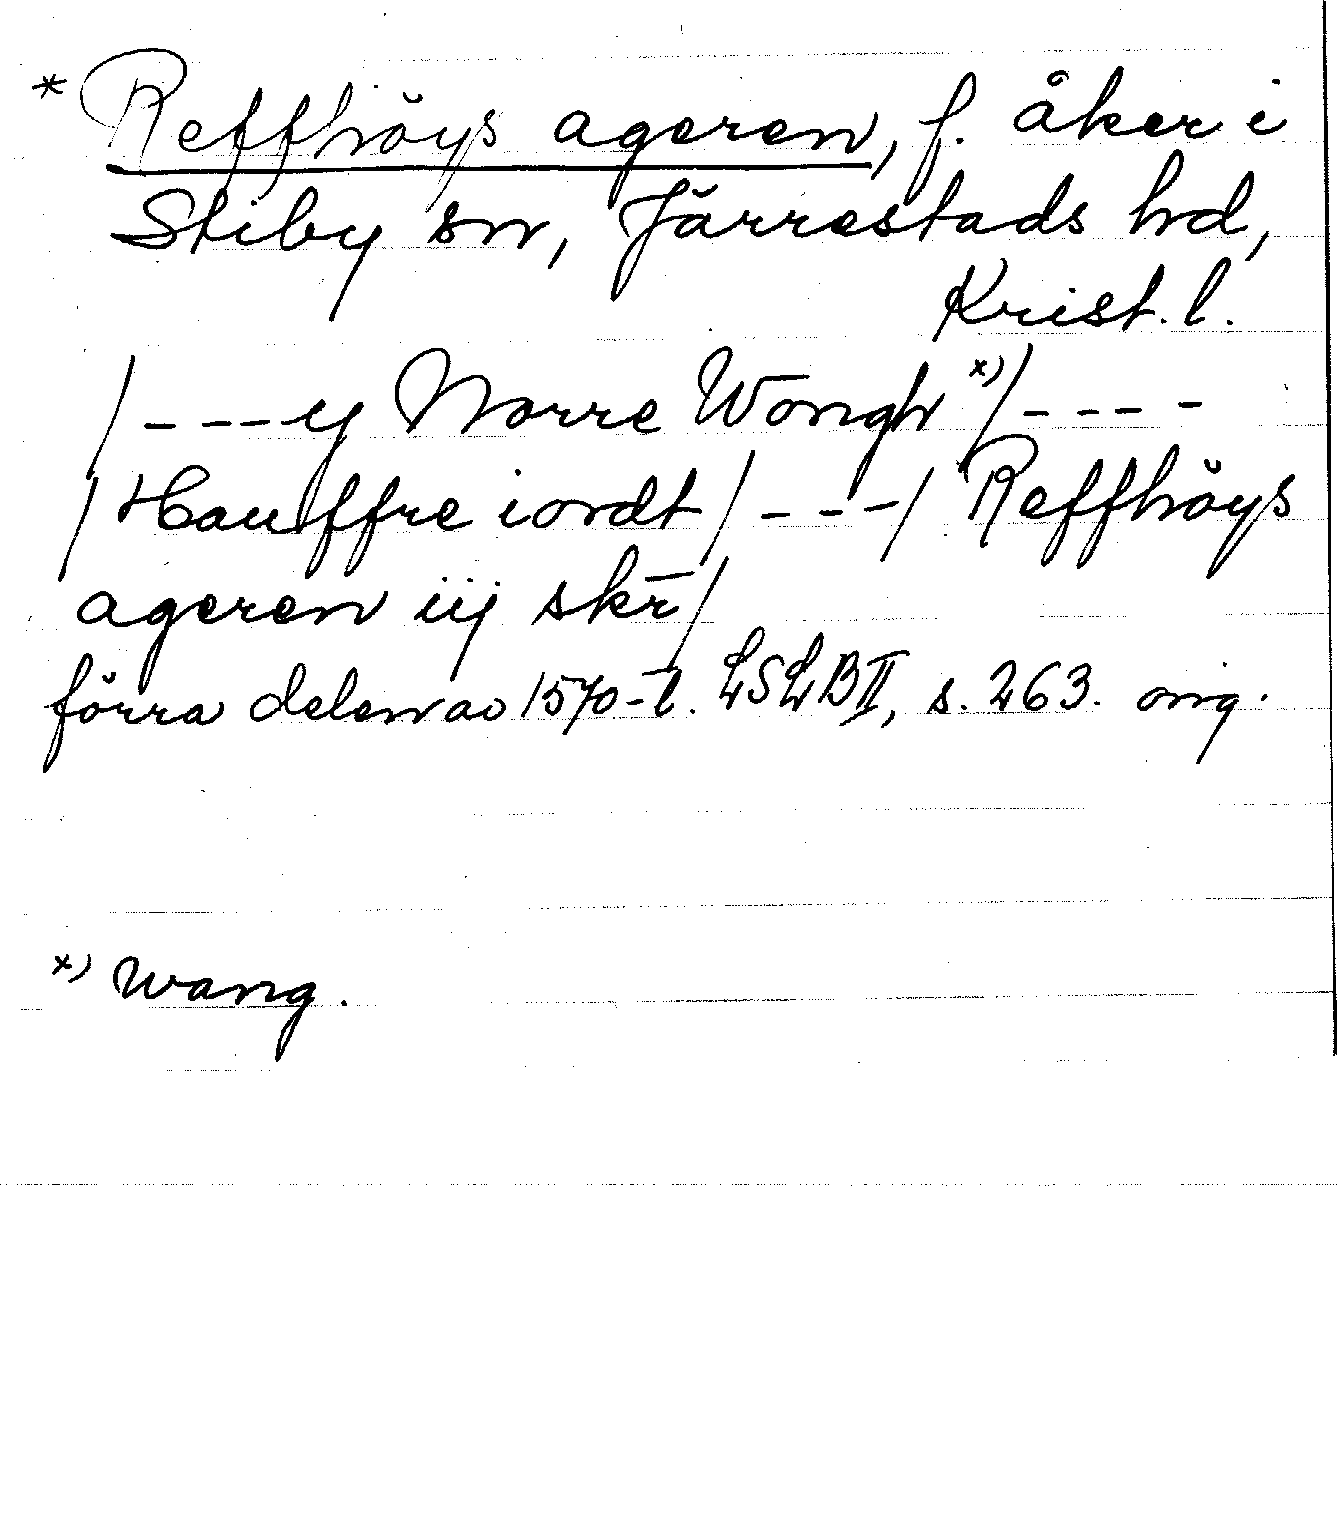 * Reffhöys ageren, f. åker i
Stiby sn, Järrestads hd,
Krist. l.
/----y Norre Wongh x)/----
/Hauffre iordt/---/Reffhöys
ageren iij skr̄/
förra delen av 1570-t. LSLB II, s. 263. orig.
x) Wang.